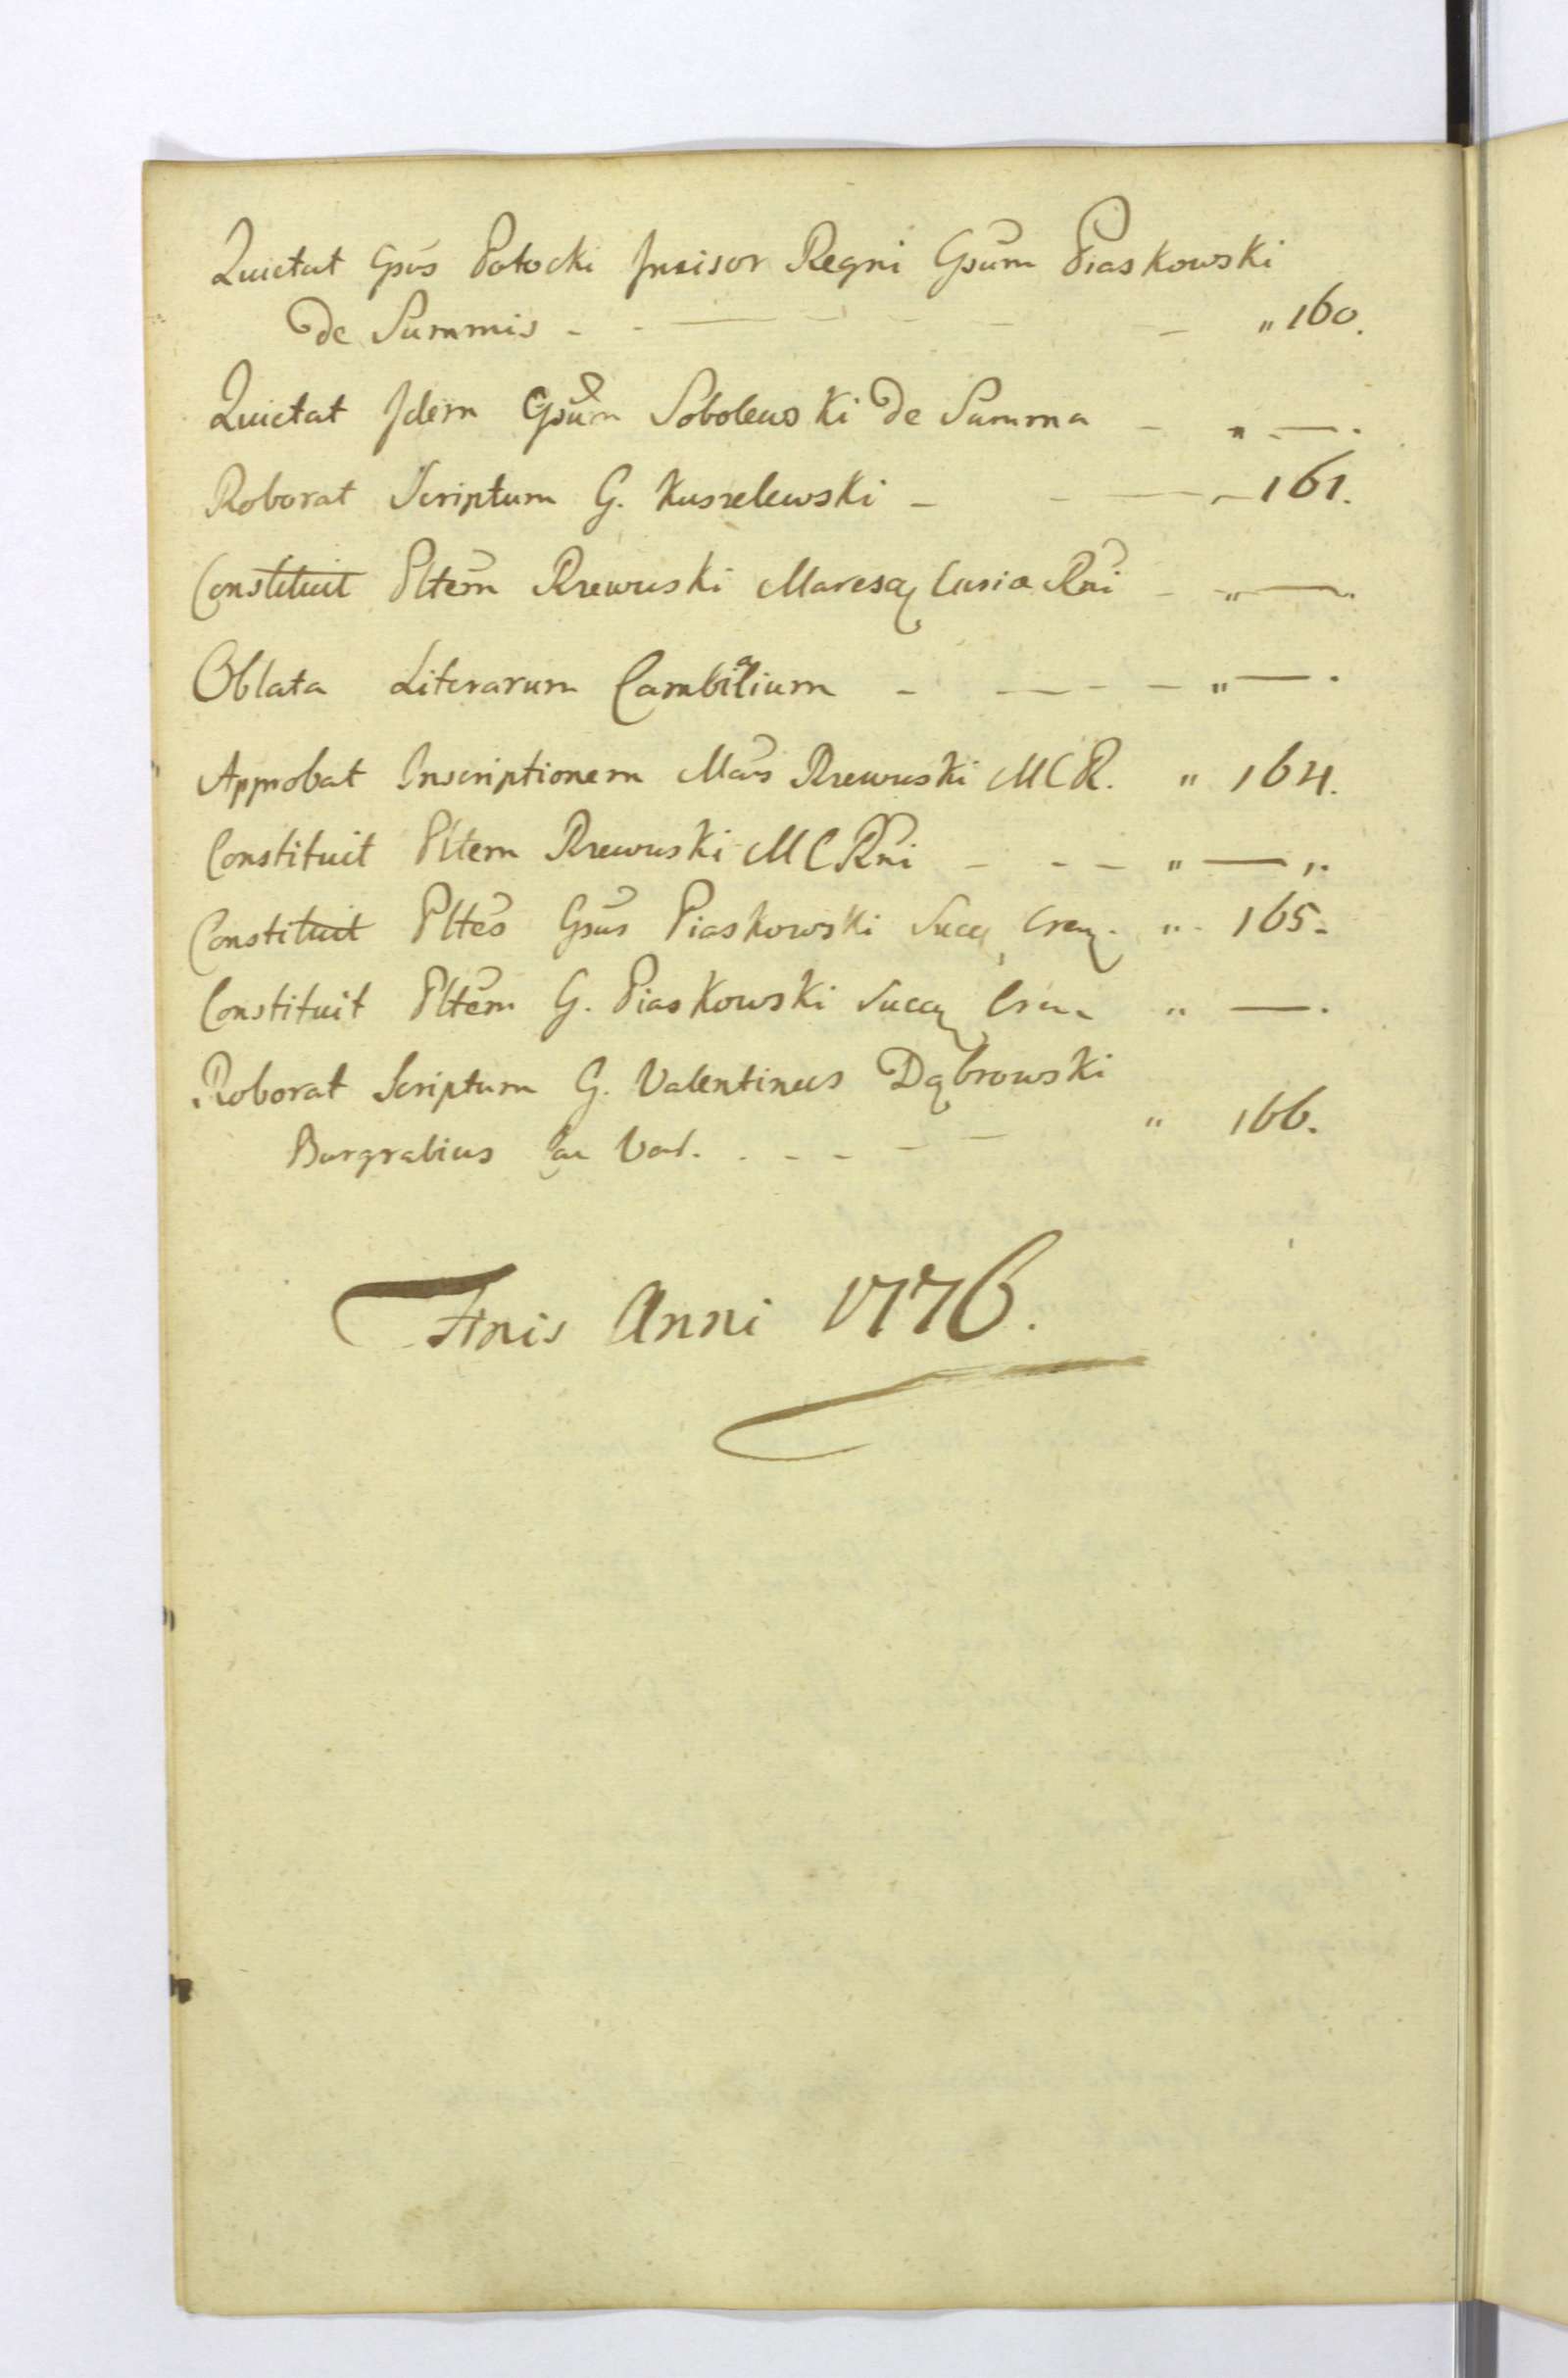 Quietat Gsus Potocki Incisor Regni Gsum Piaskowski
de Summis - - — - - - - „ 160.
Quietat Idem Gsum Sobolewski de Summa - „ —.
Roborat Scriptum G. Kuszelewski - - — 161.
Constituit Pltem Rzewuski Maresq Curiæ Rni - „ —.
Oblata Literarum Cambialium - — - - „ — .
Approbat Inscriptionem Mars Rzewuski MCR. „ 164.
Constituit Pltem Rzewuski MCRni - - - „ — „.
Constituit Pltes Gsus Piaskowski Succ Crem. „ 165.
Constituit Pltem G. Piaskowski Succ Crem. „ —.
Roborat Scriptum G. Valentinus Dąbrowski
Burgrabius . - - - - „ 166.
Finis Anni 1776.